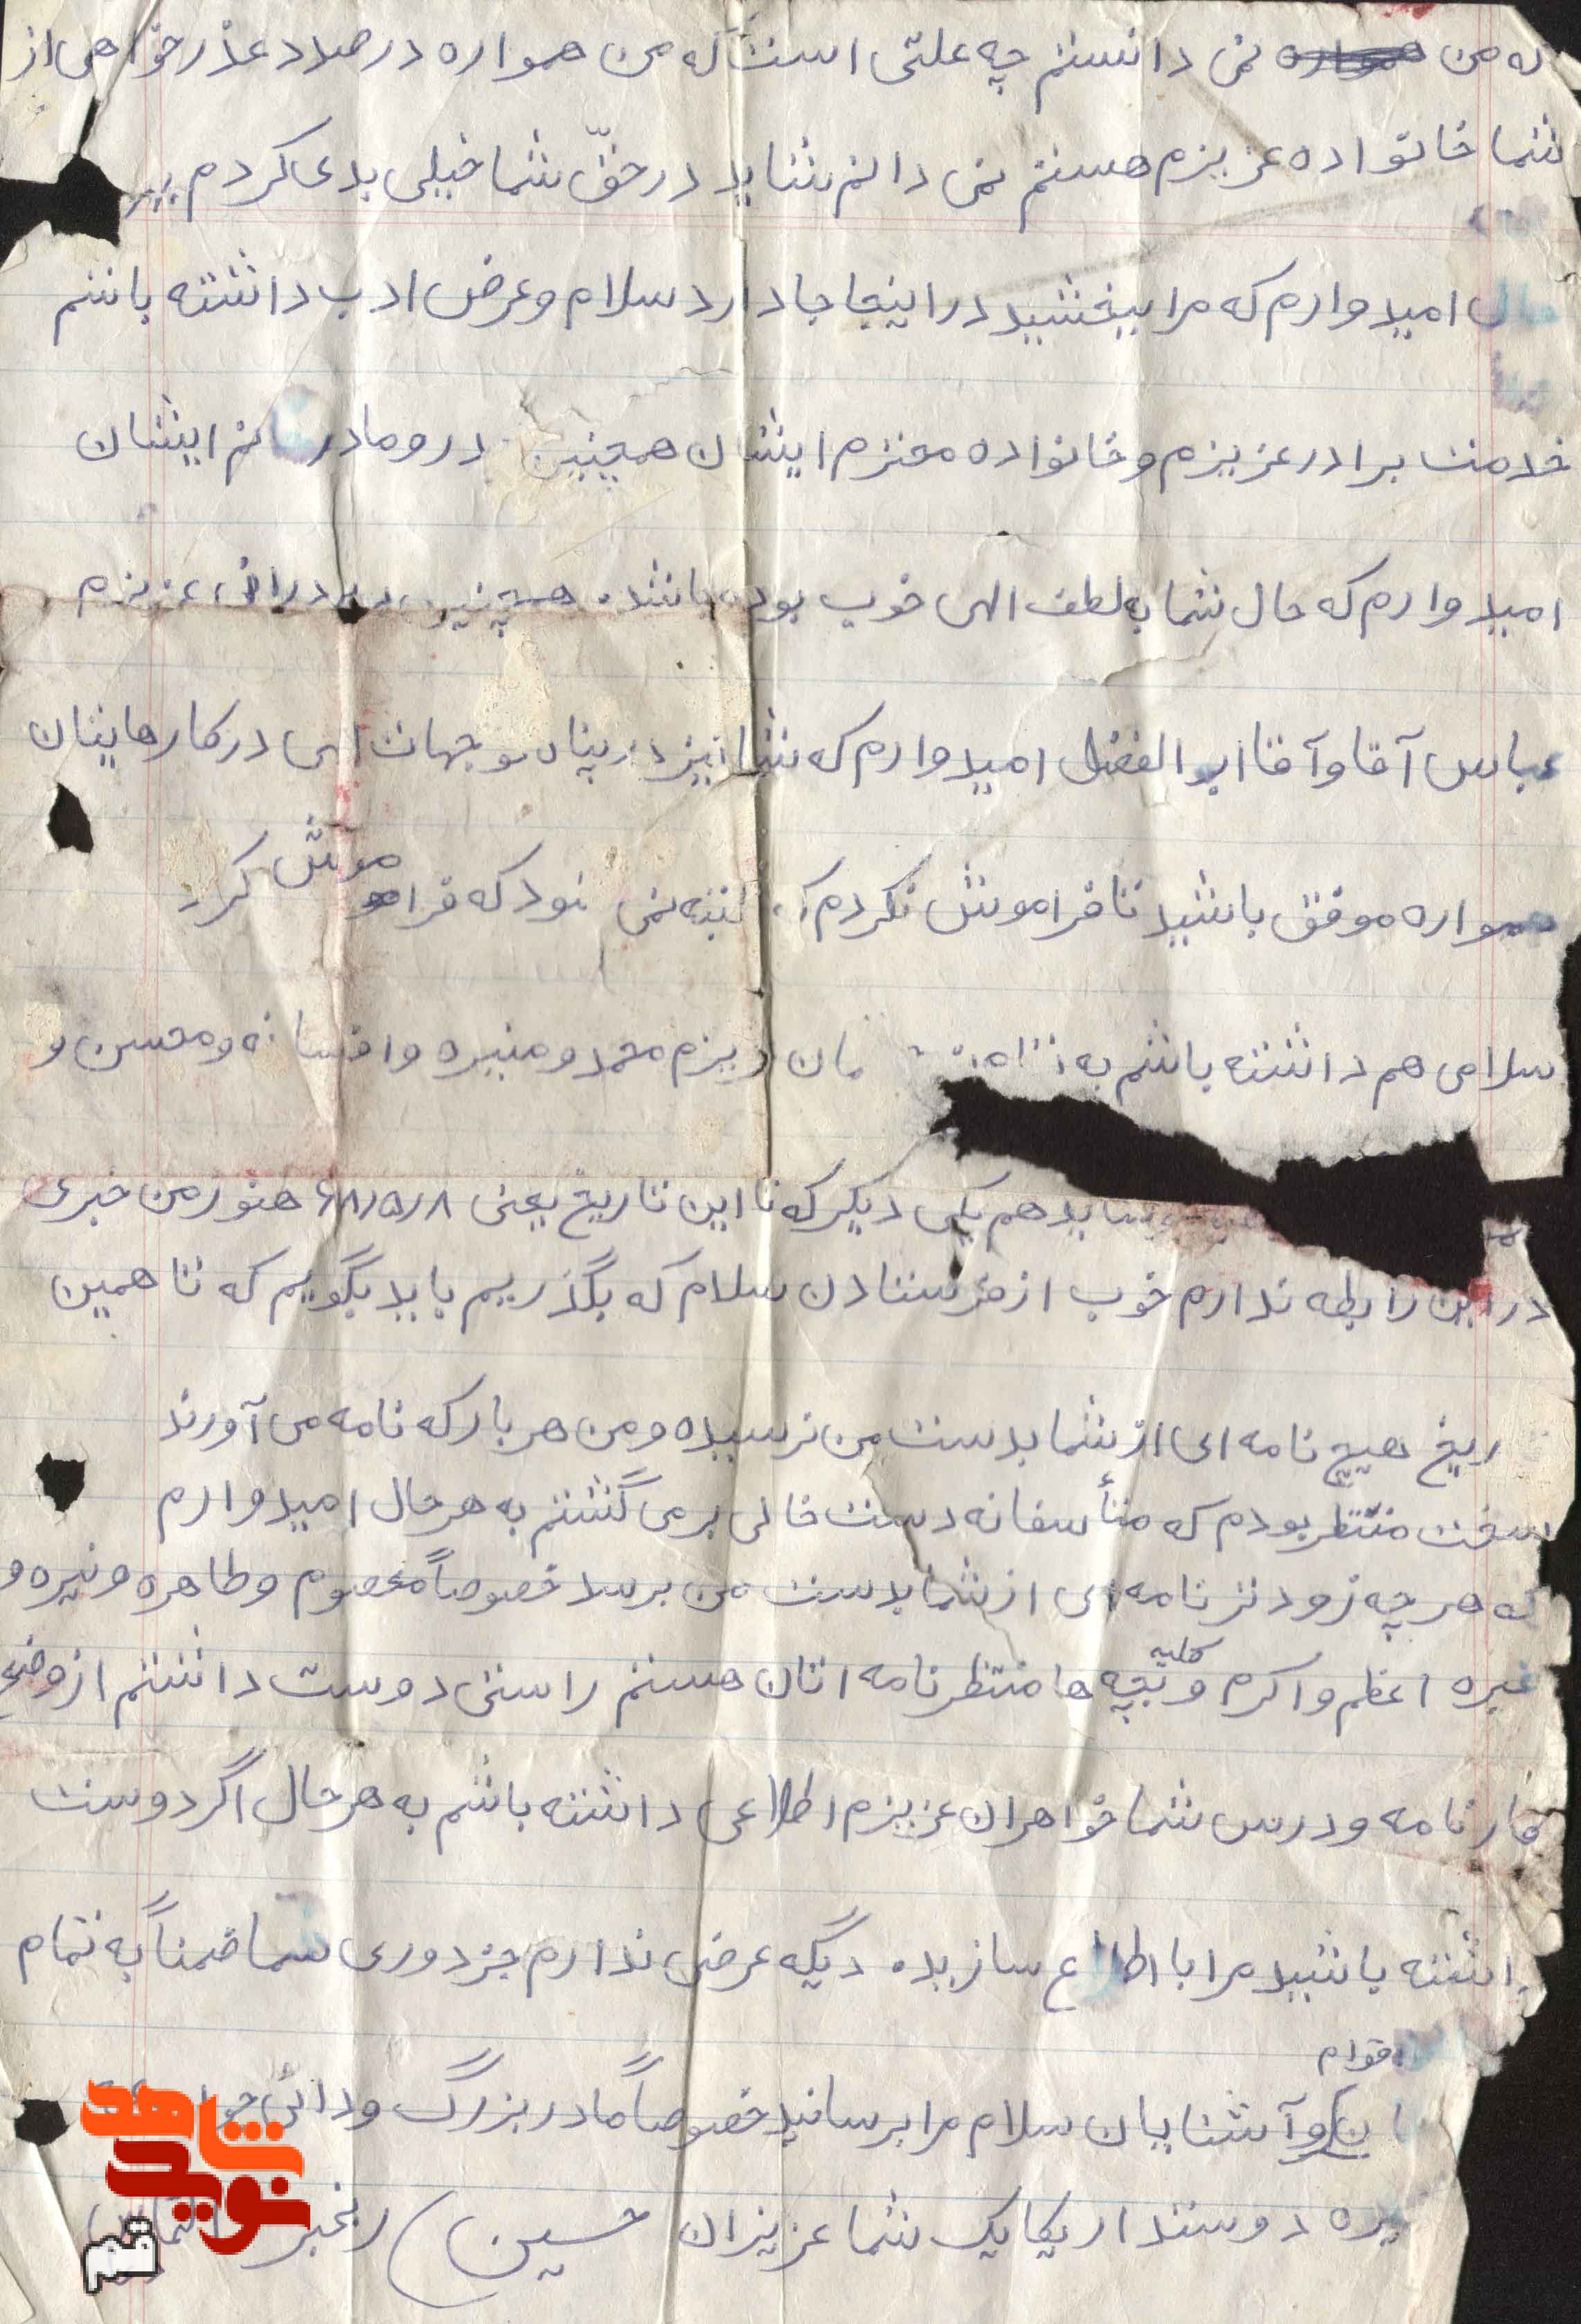 که من نمی دانستم چه علتی است که من همواره در صدد عذرخواهی از
شما خانواده عزیزم هستم نمی دانم شاید در حقّ شما خیلی بدی کردم
امیدوارم که مرا ببخشید در اینجا جا دارد سلام و عرض ادب داشته باشم
خدمت برادر عزیزم و خانواده محترم ایشان همچنین در و مادر خانم ایشان
امیدوارم که حال شما به لطف الهی خوب بوده باشد. همچنین برادران عزیزم
عباس آقا و آقا ابوالفضل امیدوارم که شما نیز در پناه توجهات الهی در کارهایتان
همواره موفق باشید تا فراموش نکردم البته نمی شود که فراموش کرد
سلامی هم داشته باشم به عزیزم محمد و منیره و افسانه و محسن و
شاید هم یکی دیگر که تا این تاریخ یعنی ۶۸/۵/۸ هنوز من خبری
در این رابطه ندارم خوب از فرستادن سلام که بگذریم باید بگویم که تا همین
ریخ هیچ نامه ای از شما بدست من نرسیده و من هر بار که نامه می آورند
سفت منتظر بودم که متأسفانه دست خالی بر می گشتم به هر حال امیدوارم
که هر چه زودتر نامه ای از شما بدست من برسد خصوصاً معصوم و طاهره و نیره و
غیره اعظم و اکرم و کلیه بچه ها منتظر نامه اتان هستم راستی دوست داشتم از وضع
کارنامه و درس شما خواهران عزیزم اطلاعی داشته باشم به هر حال اگر دوست
داشته باشید مرا با اطلاع سازید. دیگه عرضی ندارم جز دوری شما ضمناً به تمام
اقوام
و آشنایان سلام مرا برسانید خصوصاً مادر بزرگ و دائی
یره دوستدار یکایک شما عزیزان حسین
شاهد
نوید
قم